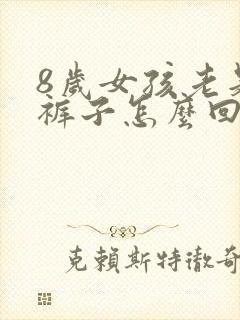 8歲女孩老是
褲子怎麼回
克賴斯特徹奇